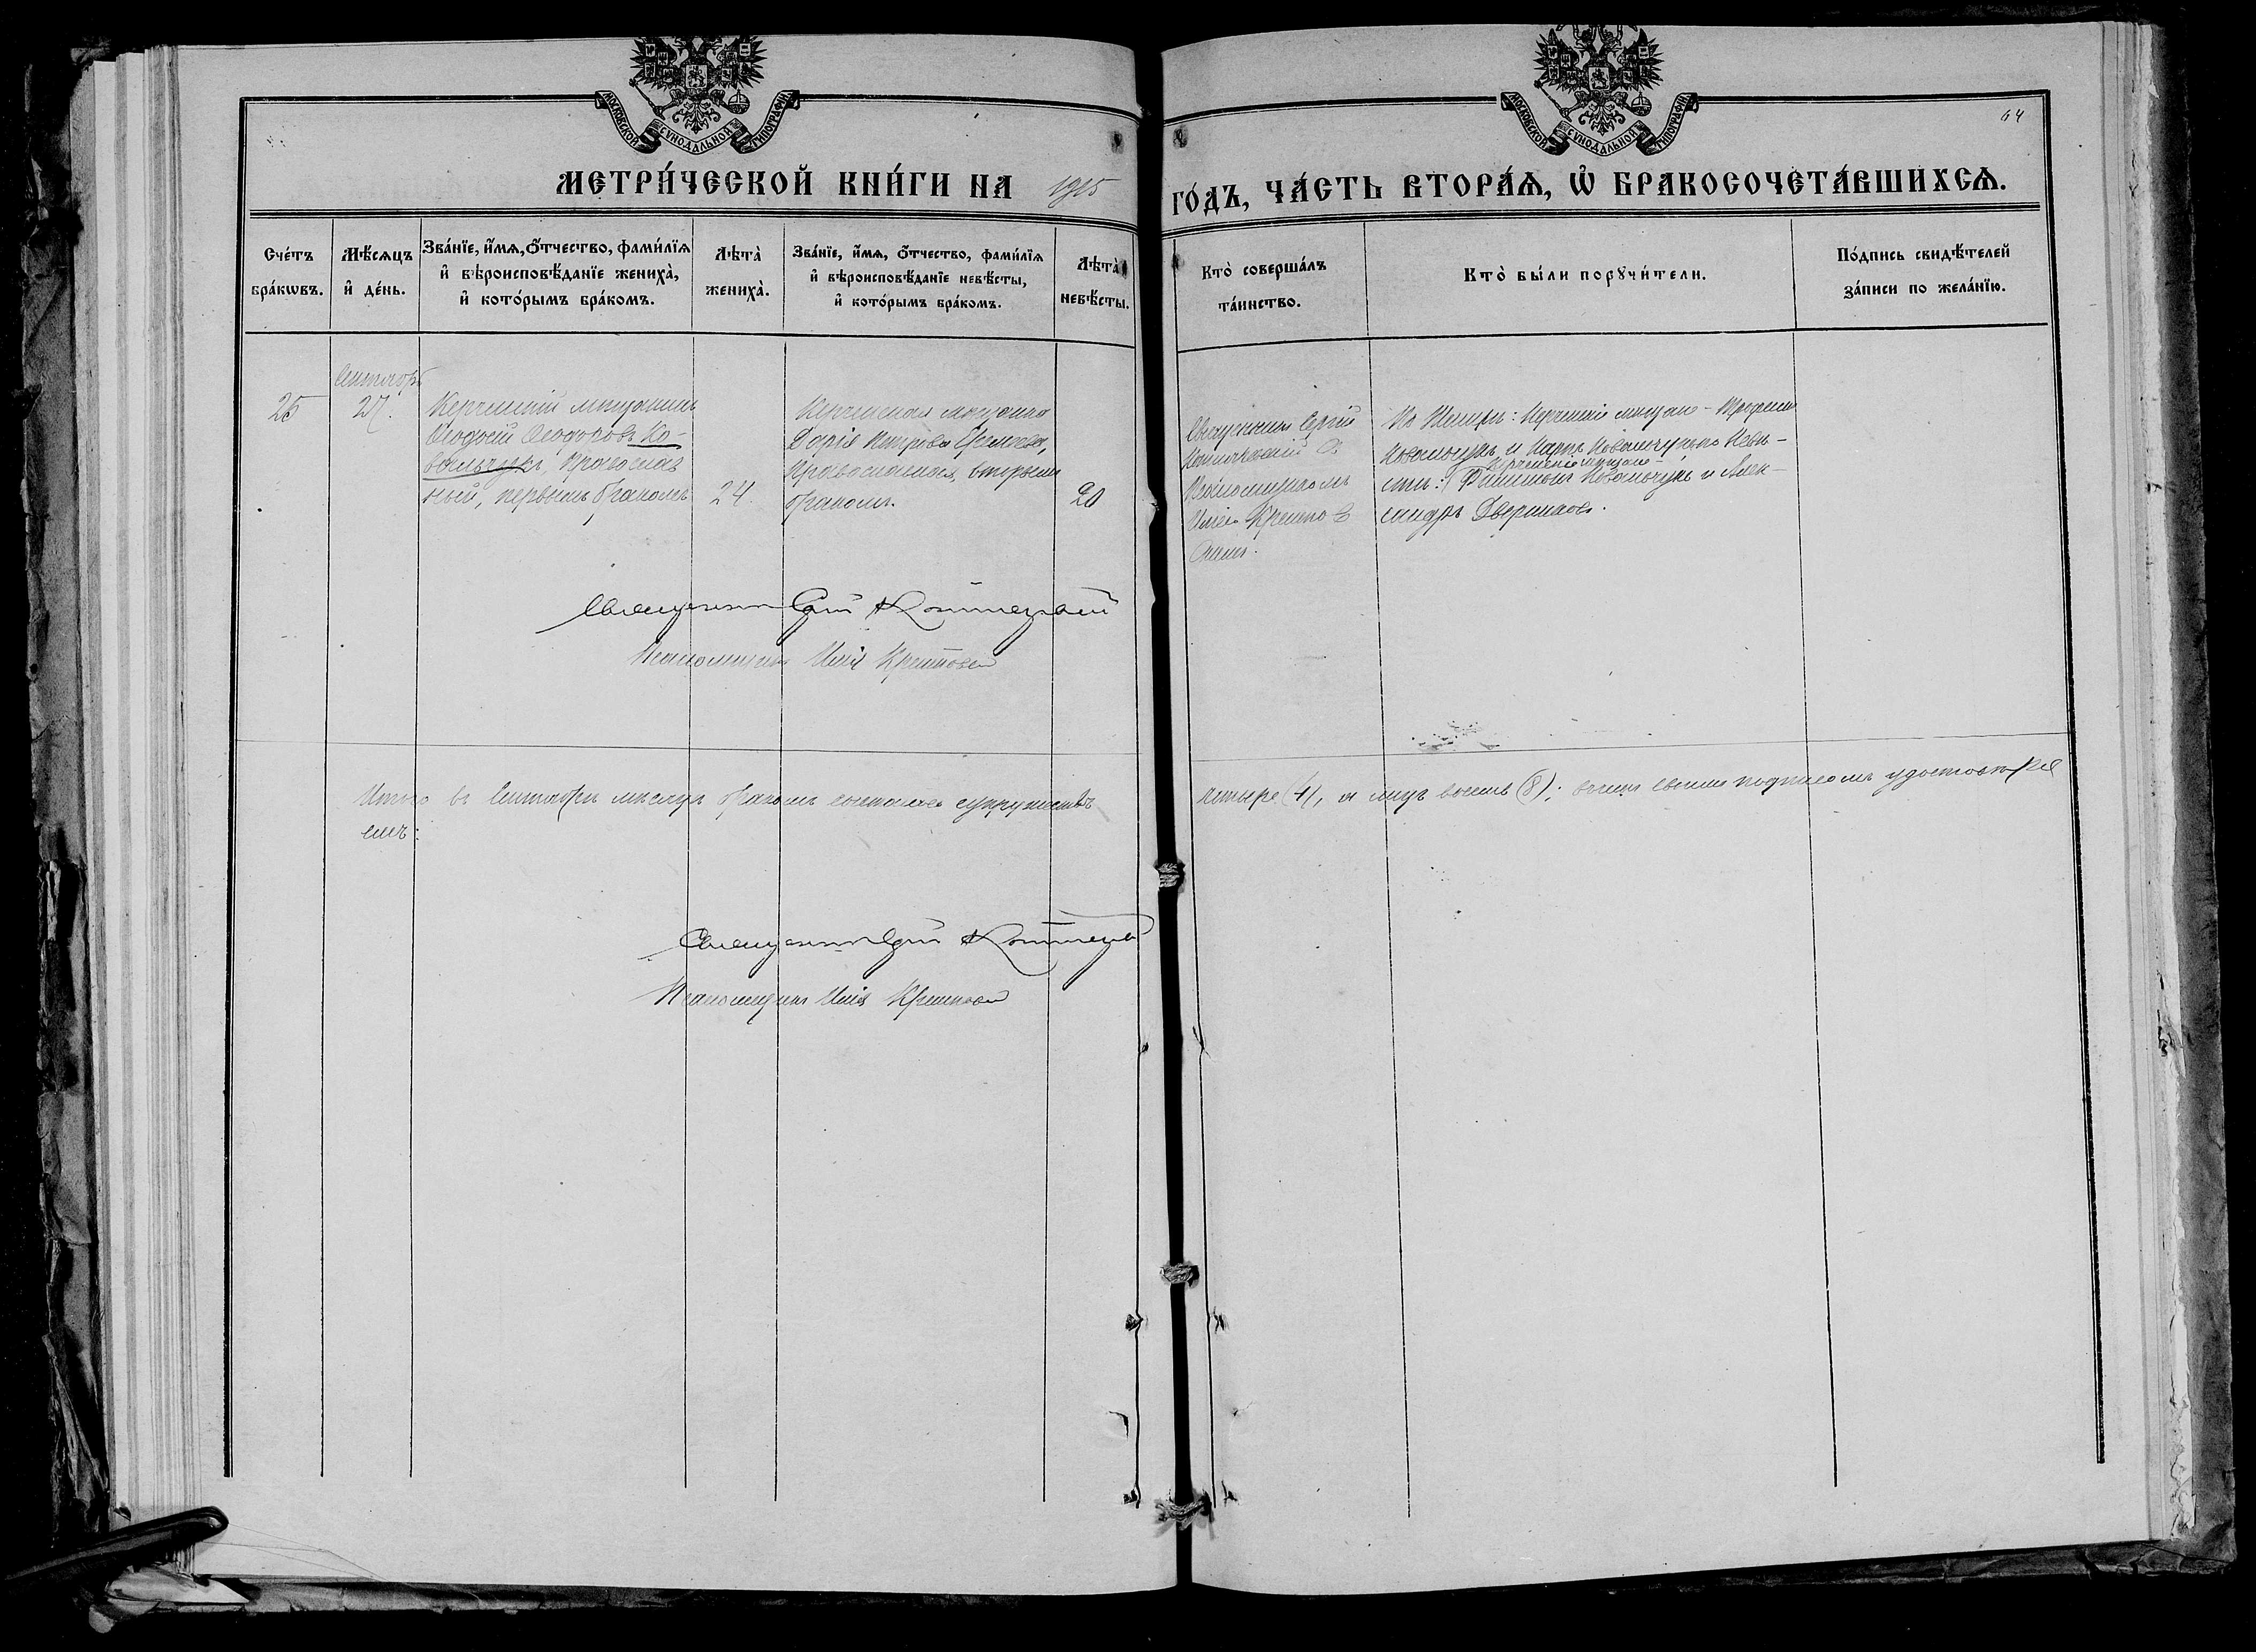 МОСКОВСКОЙ СѴНОДАЛЬНОЙ ТИПОГРАФІИ
МОСКОВСКОЙ СѴНОДАЛЬНОЙ ТИПОГРАФІИ
64
МЕТРИ́ЧЕСКОЙ КНИ́ГИ НА 1915
ГО́ДЪ, ЧА́СТЬ ВТОРА́Ѧ, Ѽ БРАКОСОЧЕТА́ВШИХСѦ.
Сче́тъ бра́кѡвъ.
Мѣ́сѧцъ и҆ де́нь.
Зва́нїе, и҆́мѧ, ѻ҆́тчество, фами́лїѧ и҆ вѣроисповѣ́данїе жениха̀, и҆ кото́рымъ бра́комъ.
Лѣта̀ жениха̀.
Зва́нїе, и҆́мѧ, ѻ҆́тчество, фами́лїѧ и҆ вѣроисповѣ́данїе невѣ́сты, и҆ кото́рымъ бра́комъ.
Лѣта̀ невѣ́сты.
Кто̀ соверша́лъ та́инство.
Кто̀ бы́ли порꙋчи́тели.
По́дпись свидѣ́телей за́писи по жела́нїю.
Сентября
25
27.
Керченскій мѣщанинъ
Ѳеодосій Ѳеодоровъ Ко-
вальчукъ, православ
ный, первымъ бракомъ
24.
Керченская мѣщанка
Дарія Петрова
православная, вторымъ
бракомъ.
20
Священникъ Сергій
съ
Псаломщикомъ
Иліею
По Женихѣ: Керченскіе мѣщане - Трофимъ
Ковальчукъ и Карпъ Ковальчукъ по Невѣ-
Керченскіе мѣщане
стѣ: Филиппъ Ковальчукъ и Алек-
сандръ
Священникъ Сергій
Псаломщикъ Илія
Итого въ Сентябрѣ мѣсяцѣ бракомъ сочеталось супружествъ
четыре (4), а лицъ восемь (8); въ чемъ своимъ подписомъ удостовѣряе
емъ:
Священникъ Сергій
Псаломщикъ Илія